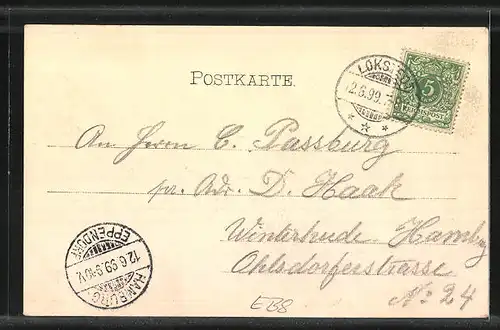 POSTKARTE.
LOKSTEDT
12.6.99.
5
REICHSPOST
An Herrn C. Passburg
pr. Adr. D. Haak
Winterhude. Hamburg
Ohlsdorferstrasse
No: 24
HAMBURG
EPPENDORF
12.6.99.9-10V.
EBS